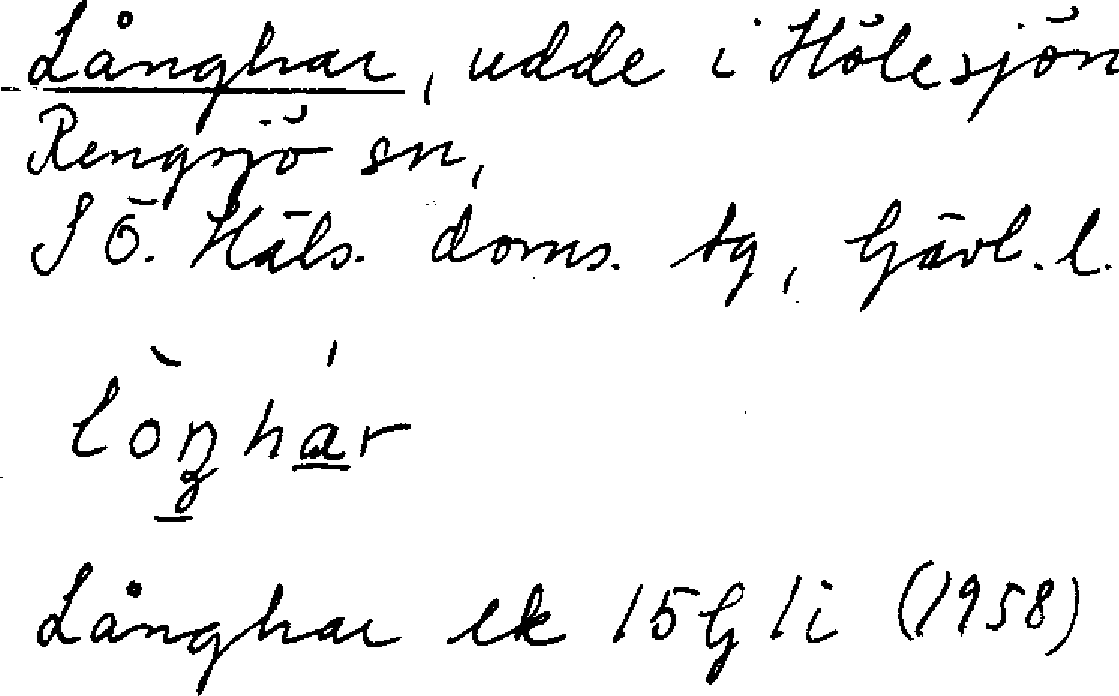 Långhar, udde i Hölesjön
Rengsjö sn,
S Ö. Häls. doms. tg, Gävl. l.
lòŋhár
Långhar ek 15G1i (1958)